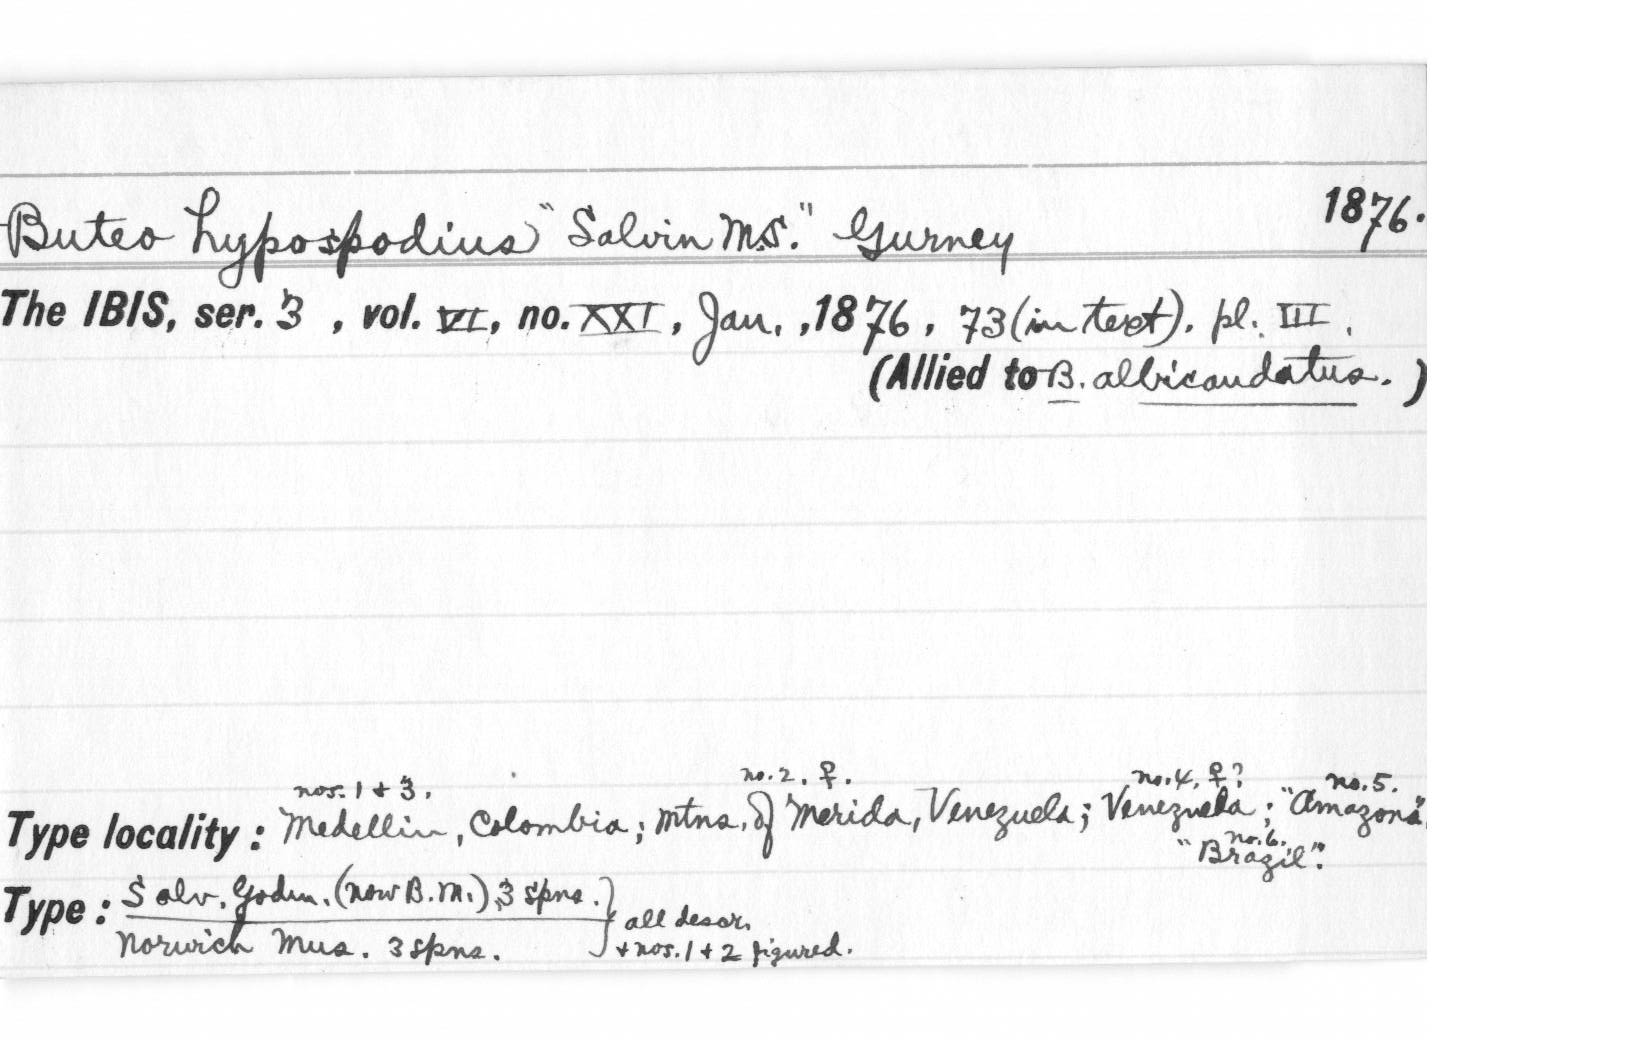 Buteo hypospodius "Salvin MS." Gurney 1876.
The IBIS, ser. 3 , vol. VI, no. XXI , Jan. ,1876 , 73 (in text). pl. III .
(Allied to B. albicaudatus. )
nos. 1 + 3. no. 2, ♀. no. 4, ♀? no. 5.
Type locality : Medellin, Colombia; mtns. of Merida, Venezuela; Venezuela; "Amazons".
no. 6.
"Brazil".
Type : Salv. Godm. (now B.M.) 3 spns. } all descr.
Norwich Mus. 3 spns. + nos. 1 + 2 figured.